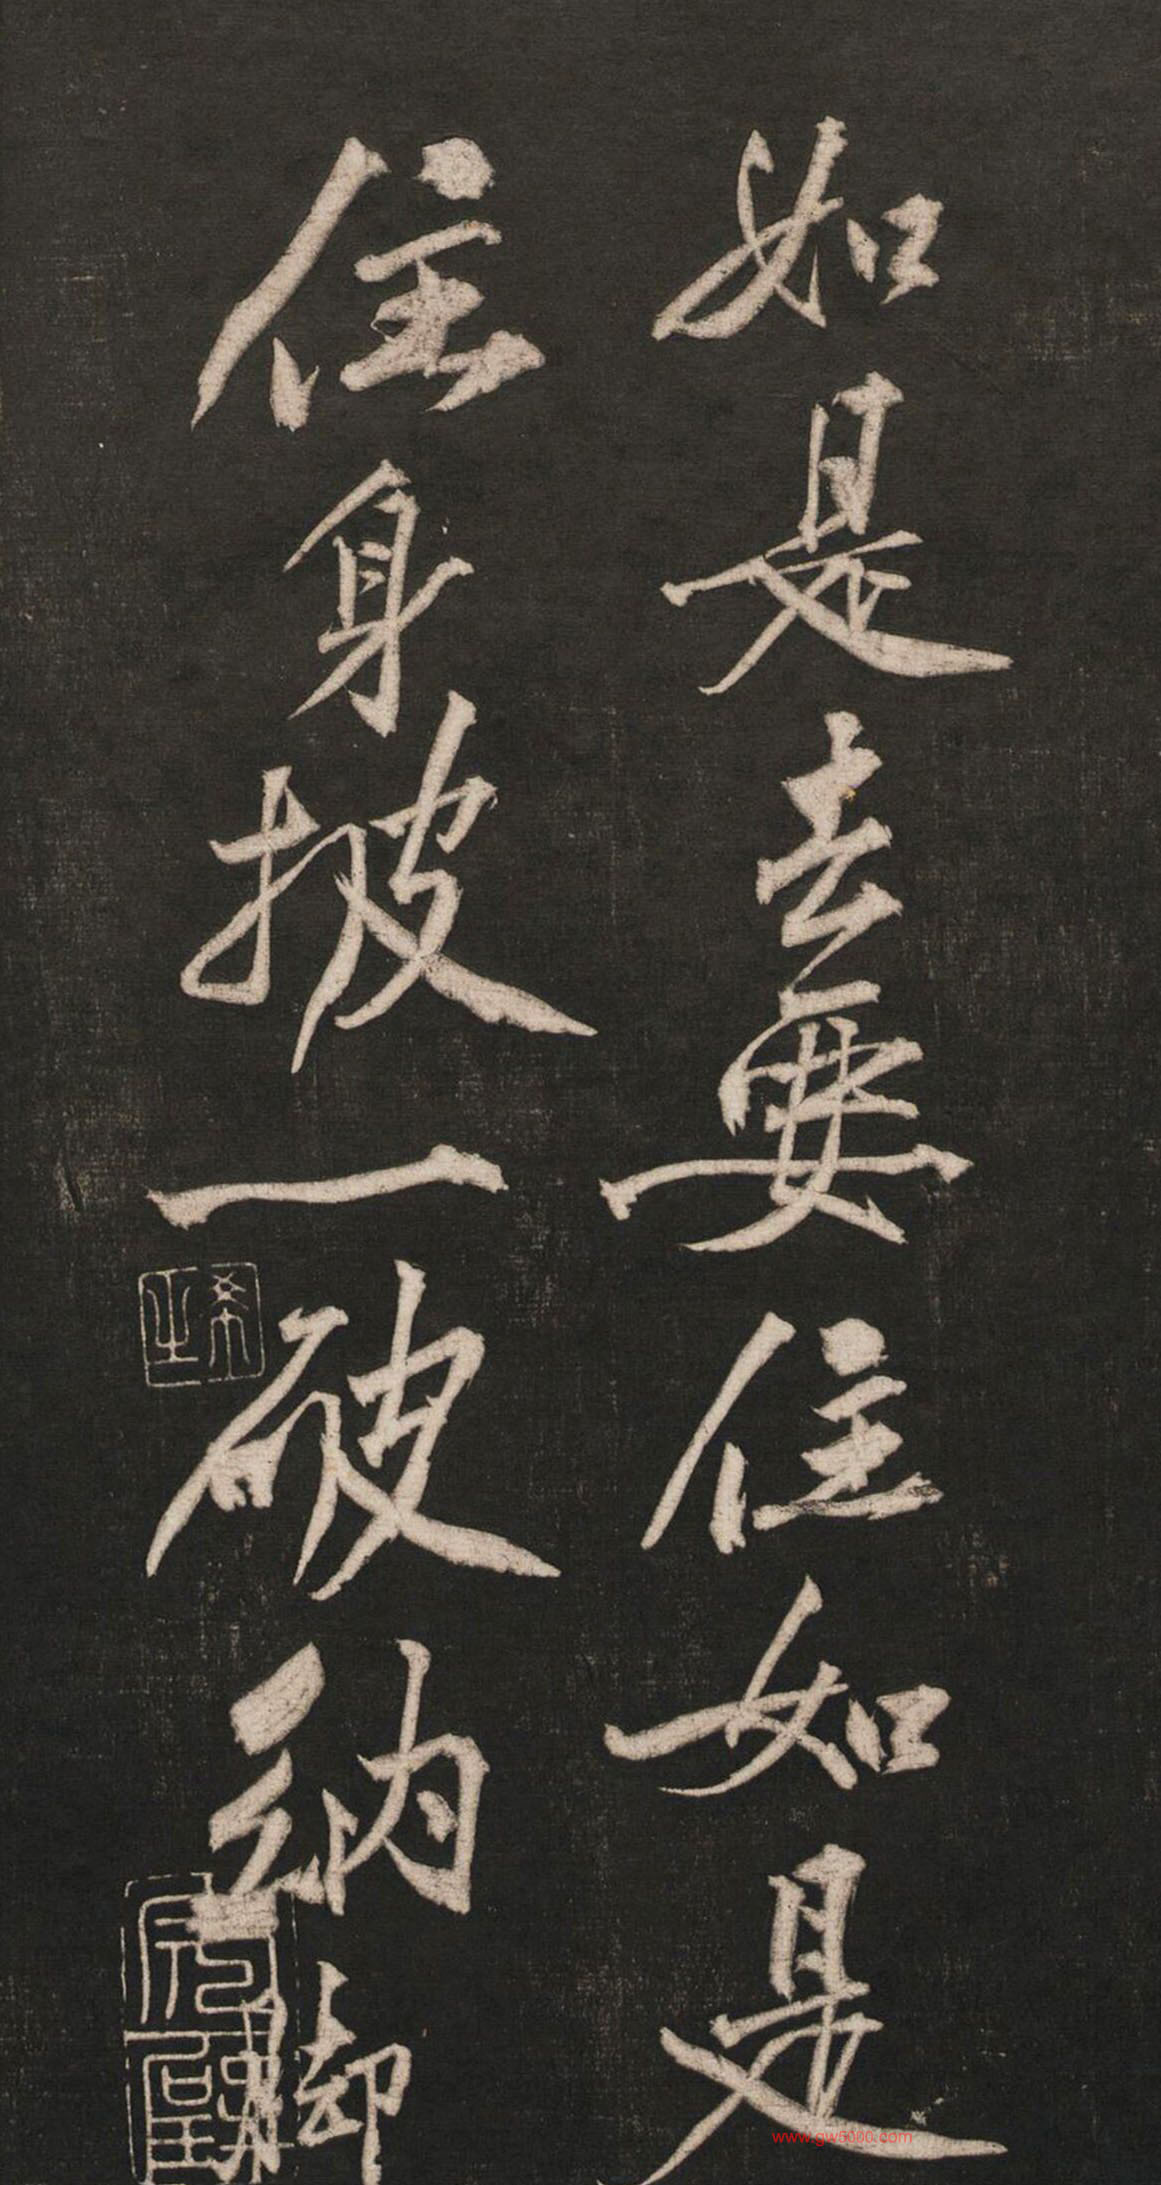 如是去要住如是
住身披一破衲脚
www.gw5000.com